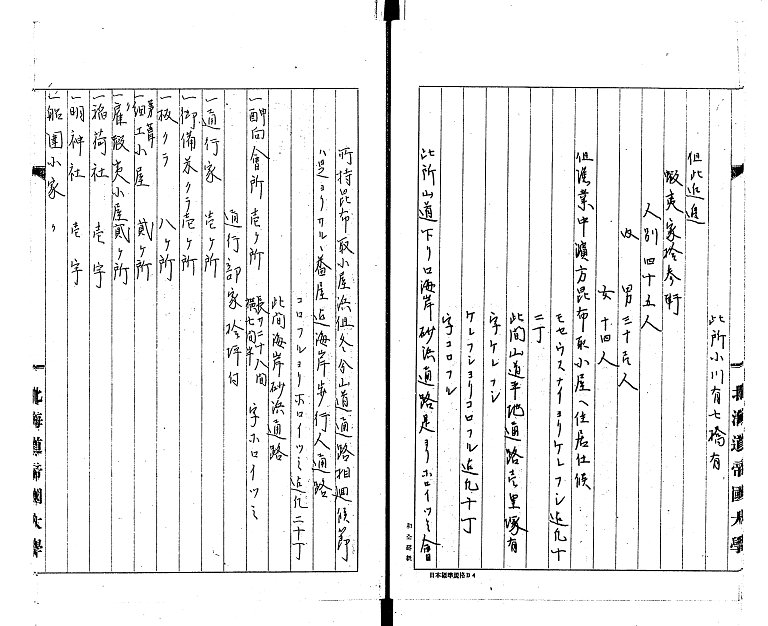 此所小川有七橋有
但此近辺
蝦夷家拾参軒
人別四十五人
内 男三十壱人
女十四人
但漁業中濱方昆布取小屋ヘ住居仕候
モセウスナイヨリケレフシ迄凡十
二丁
此間山道平地通路壱里塚有
字ケレフシ
ケレフシヨリコロフル迄凡十丁
字コロフル
此所山道下り口海岸砂浜通路是ヨリホロイツミ會
北海道帝國大學
日本標準規格B4
所持昆布取小屋浜但冬分山道通路相廻候節
ハ是ヨリサルヽ番屋迄海岸歩行人通路
コロフルヨリホロイツミ迄凡二十丁
此間海岸砂浜通路
一 会所 壱ヶ所 長サ二十八間 横七間半 字ホロイツミ
通行部家拾坪付
一通行家 壱ヶ所
一御備米クラ壱ヶ所
一板クラ 八ヶ所
一細工小屋 貳ヶ所
一雇蝦夷小屋貳ヶ所
一稲荷社 壱宇
一明神社 壱宇
一船囲小家 〃
北海道帝國大學